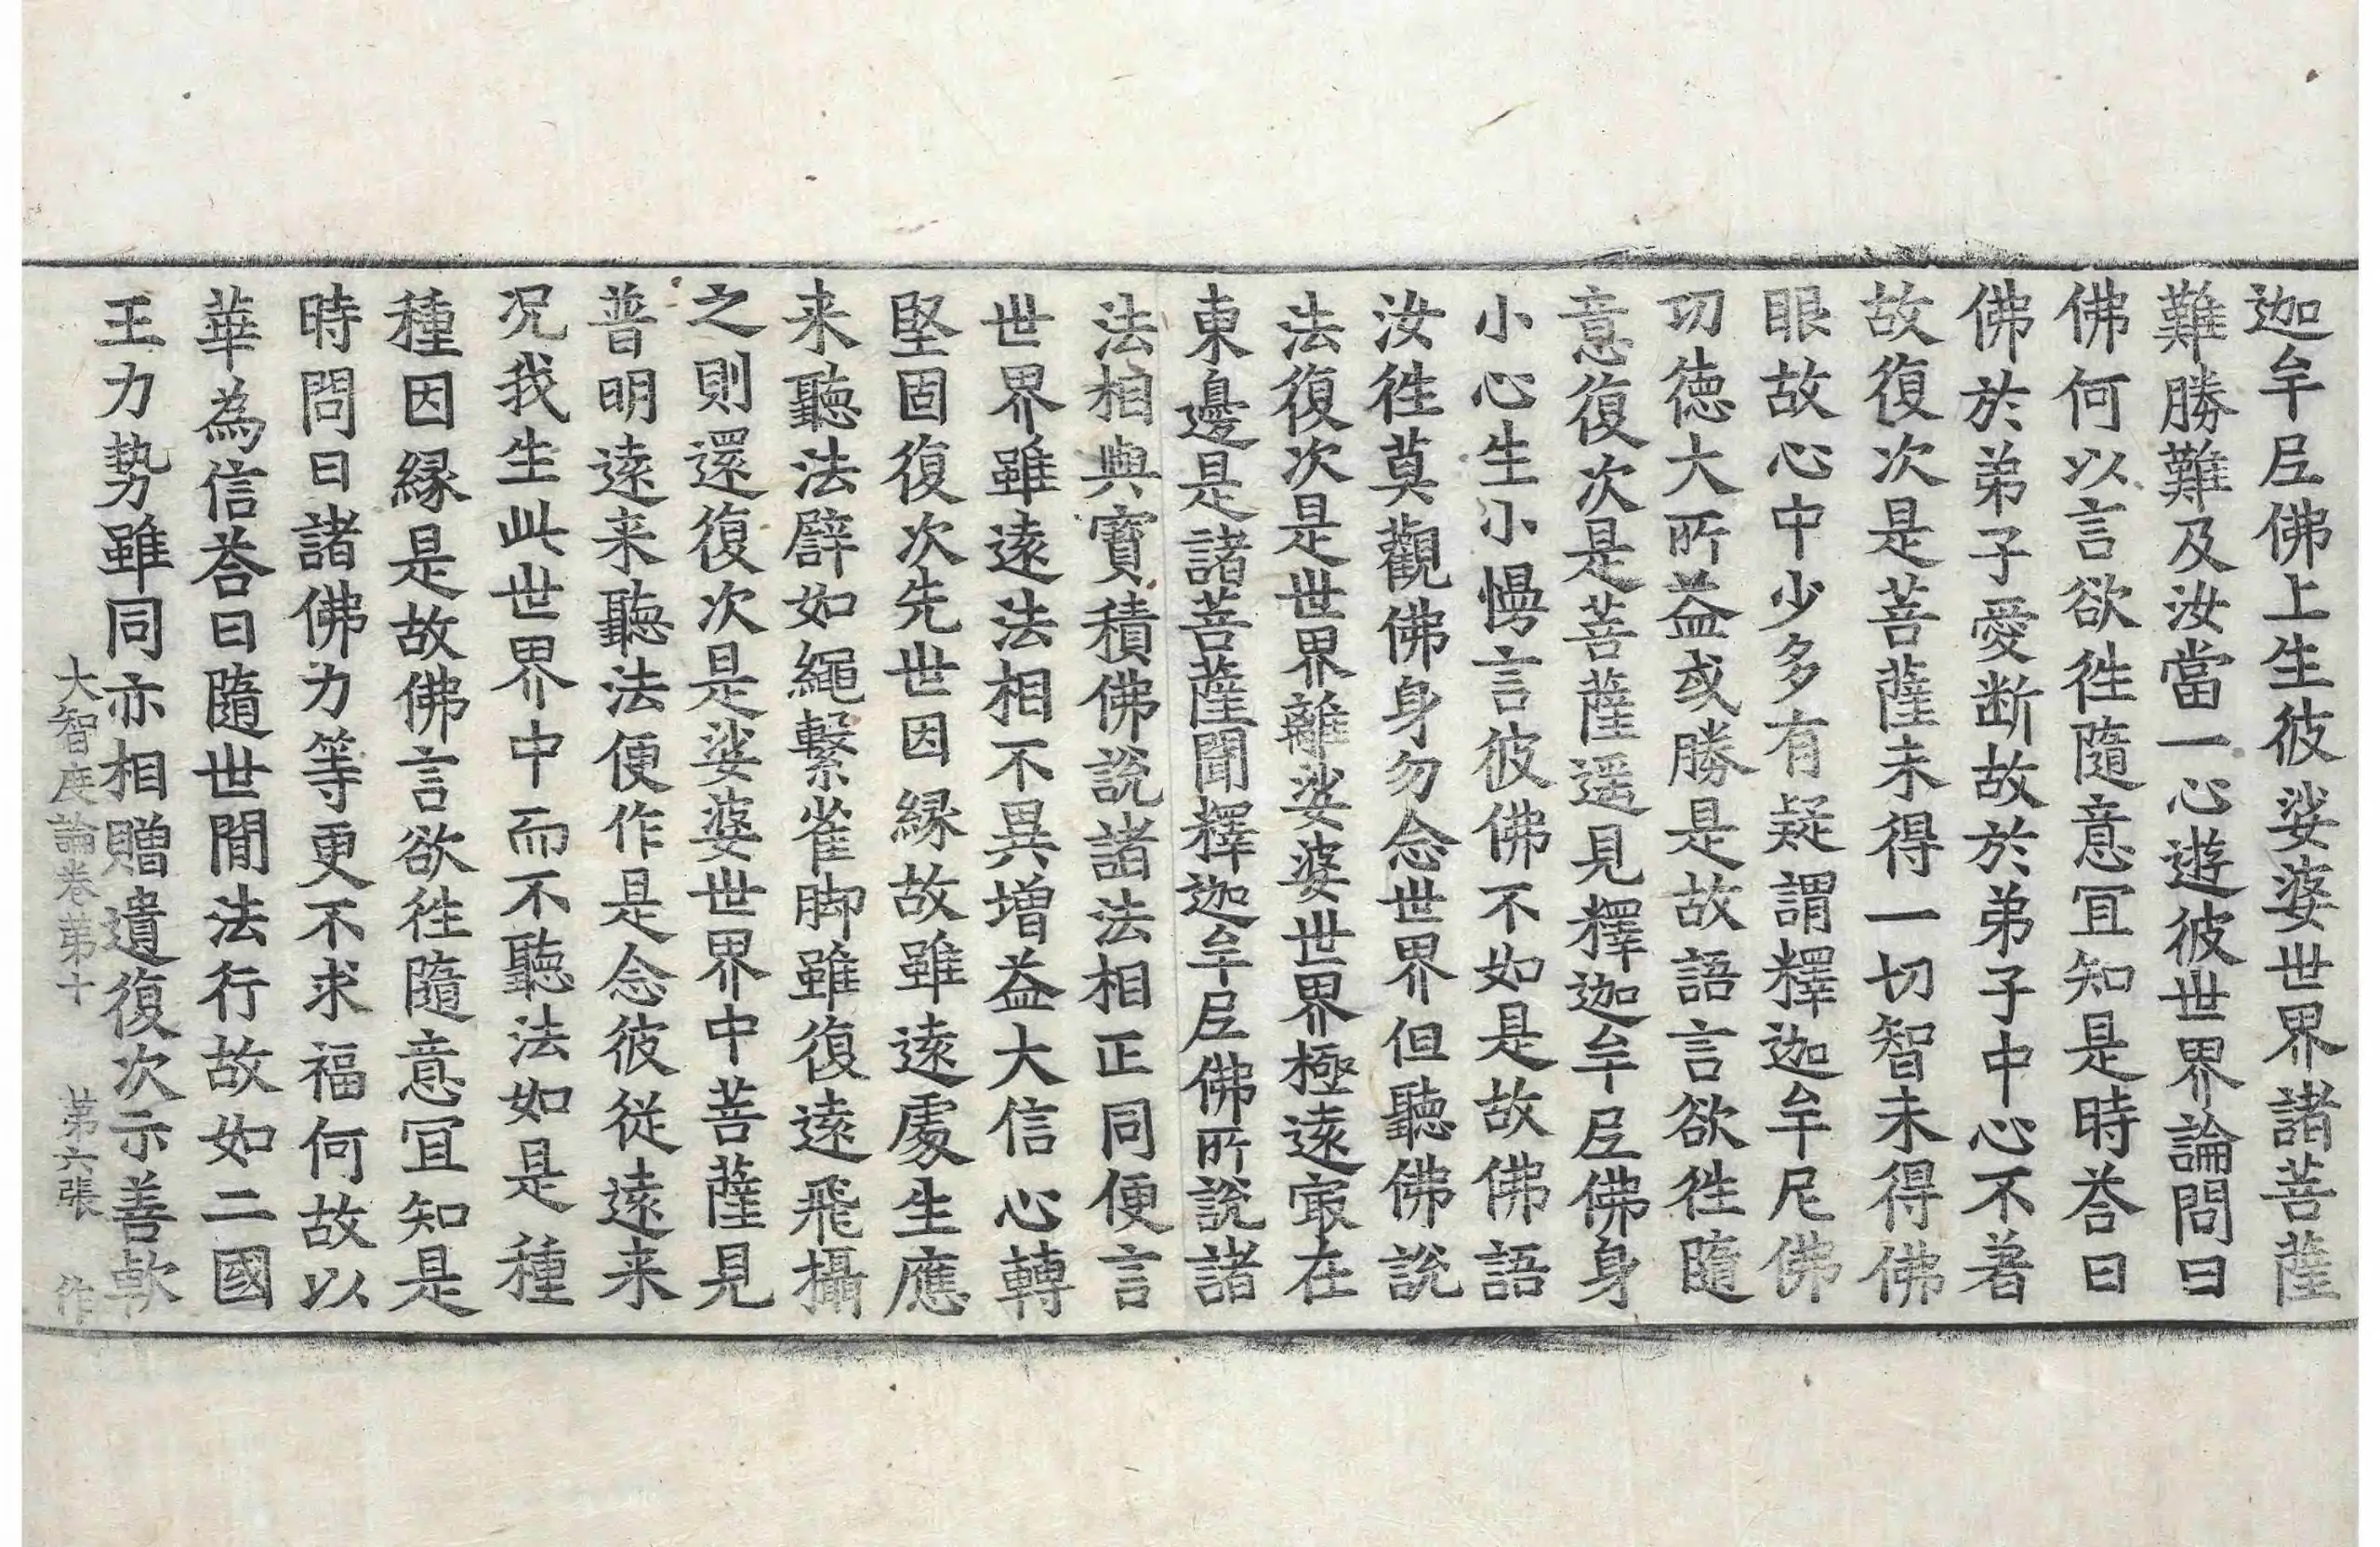 迦牟𡰱佛上生彼娑婆世界諸菩薩
難勝難及汝當一心遊彼世界論問曰
佛何以言欲徃隨意冝知是時荅曰
佛於弟子愛断故於弟子中心不著
故復次是菩薩未得一切智未得佛
眼故心中少多有疑謂釋迦牟尼佛
功徳大所益或勝是故語言欲徃隨
意復次是菩薩遥見釋迦牟𡰱佛身
小心生小慢言彼佛不如是故佛語
汝徃莫觀佛身勿念世界但聽佛說
法復次是世界離娑婆世界極遠㝡在
東邊是諸菩薩聞釋迦牟𡰱佛所說諸
法相與寶積佛說諸法相正同便言
世界雖遠法相不異增益大信心轉
堅固復次先世因縁故雖遠處生應
来聽法譬如繩繫雀脚雖復遠飛攝
之則還復次是娑婆世界中菩薩見
普明遠来聽法便作是念彼從遠来
况我生此世界中而不聽法如是種
種因縁是故佛言欲徃隨意冝知是
時問曰諸佛力等更不求福何故以
華為信荅曰隨世間法行故如二國
王力勢雖同亦相贈遺復次示善軟
大智度論卷苐十　苐六張　作